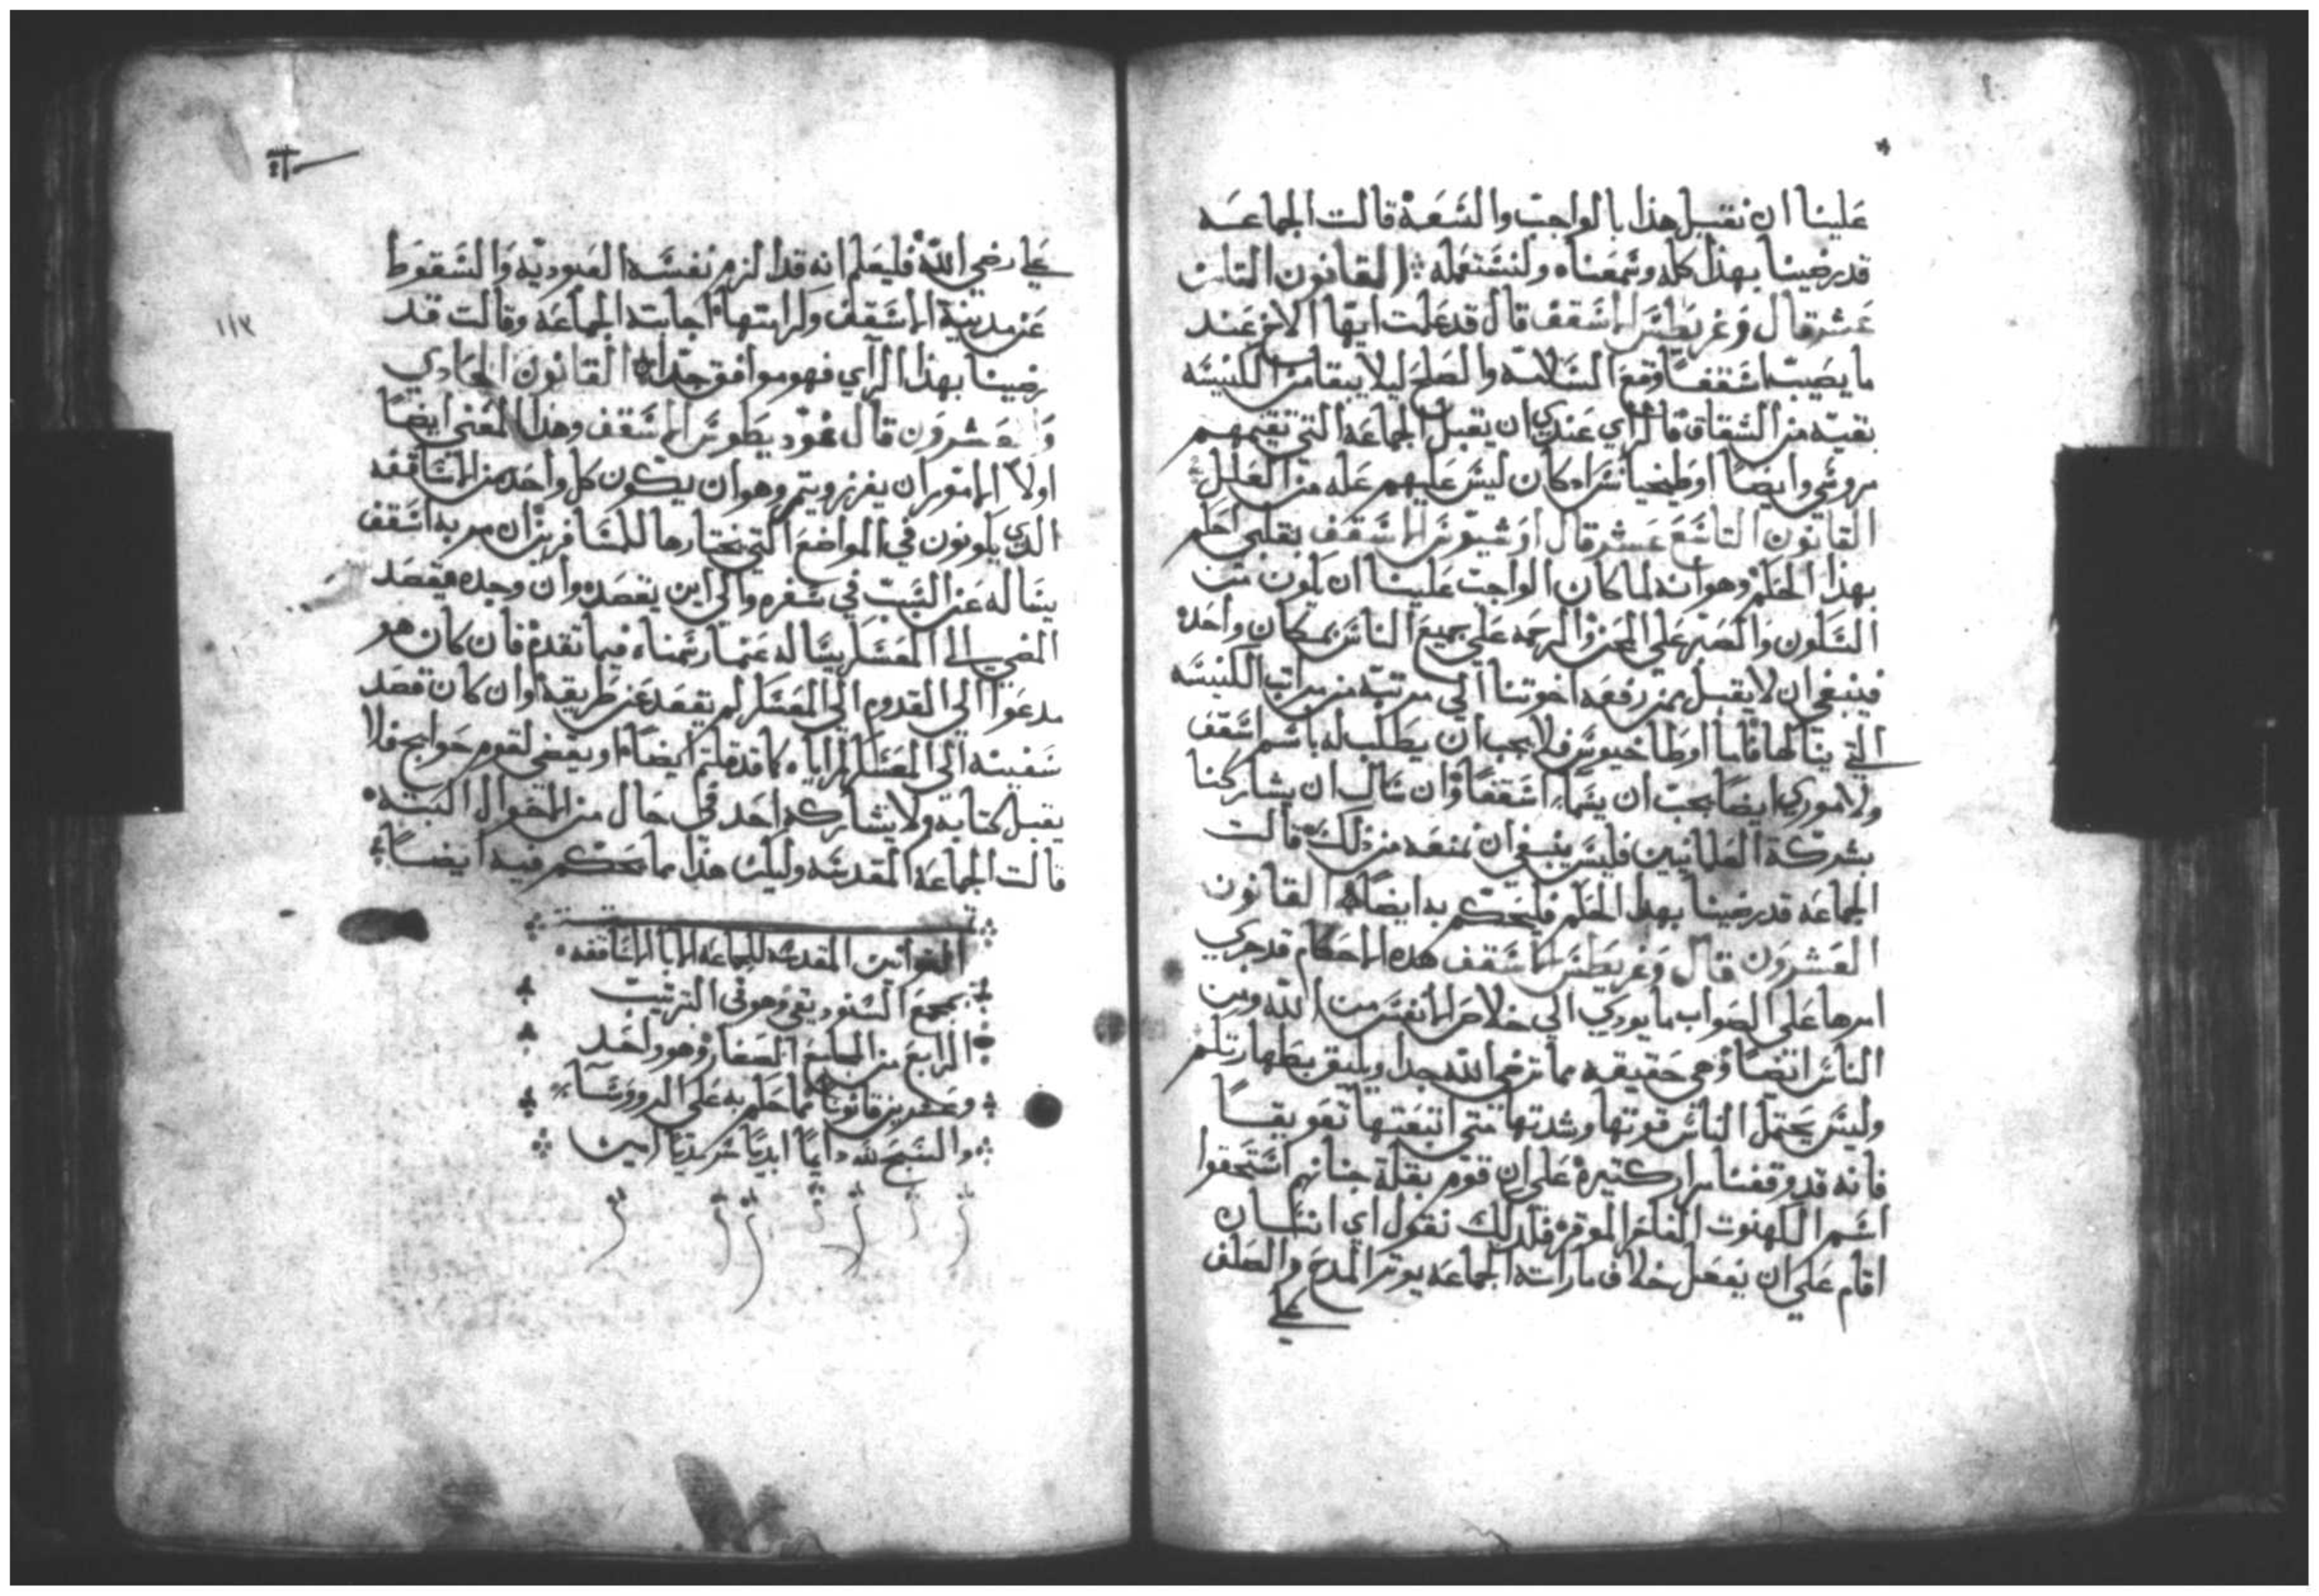 علينا ان نقبل هذا بالواجب والسعة قالت الجماعه
قد رضينا بهذا كله وسمعناه ولنستعمله القانون الثامن
عشر قال وغريطس الاسقف قال قد علمت ايها الاخ عند
ما يصيب اسقفا وقع السلامه والصلح ليلا يبقا من الكنيسه
بقيه من الشقاق قالراي عندي ان يقبل الجماعه التي تقيمهم
موسي وايضا اوطيخيانس اد كان ليس عليهم عله من العلل
القانون التاسع عشر قال اوشيوس الاسقف بقلبي احلم
بهذا الحكم وهو انه لما كان الواجب علينا ان يكون من
السكون والصبر علي الحزن والرحمه علي جميع الناس بمكان واحده
فينبغي ان لا يقبل بمن رفعه اخوتنا الي مرتبة من مراتب الكنيسه
التي ينالها فاما اوطاخيوس فلا يجب ان يطلب له باسم اسقف
ولا موري ايضا يجب ان يسما اسقفا وان سال ان يشاركنا
بشركة العلمانيين فليس ينبغي ان نمنعه من ذلك قالت
الجماعه قد رضينا بهذا الحكم فليحكم به ايضا القانون
العشرون قال وغريطس الاسقف هده الاحكام قد جري
امرها علي الصواب ما يودي الي خلاص الانفس من الله ومن
الناس ايضا وهي حقيقيه مما ترضي الله جدا ويليق بطهارتكم
وليس يحتمل الناس قوتها وشدتها متي اتبعتها تعويقا
فانه قد وقفنا مرار كتيرة علي ان قوم بقلة جنانهم استحقوا
اسم الكهنوت الفاخر الموقر فلدلك نقول اي انسان
اقام علي ان يفعل خلاف ما راته الجماعه يوتر المدح والصلف
علي
علي رضي الله فليعلم انه قد الزم نفسه العبوديه والسقوط
عن مدينة الاسقف وكرامتها اجابت الجماعه وقالت قد
رضينا بهذا الراي فهو موافق جدا القانون الحادي
والعشرون قال غوديطوس الاسقف وهذا المعني ايضا
اولا الامور ان يفرز ويتم وهو ان يكون كل واحد من الاساقفه
الدي يكونون في المواضع التي نختارها للمسافرين ان مر به اسقف
يساله عن السبب في سفره والي اين يقصد وان وجده يقصد
المضي الي المعسكر يساله عما رسمناه فيما تقدم فان كان هو
مدعوا الي القدوم الي المعسكر لم يقصد عن طريقه وان كان قصد
سفينه الي المعسكر كما قد قلتم ايضا او يقضي لقوم حوايج فلا
يقبل كتابه ولا يشاركه احد في حال من الاحوال البته
قالت الجماعه المقدسه وليكن هذا مما نحكم فيه ايضا
القوانين المقدسه للجماعه الابا الاساقفه
بمجمع السنوديقي وهو في الترتيب
الرابع من المجامع الصغار وهو واحد
وعشرين قانونا مما حكم به علي الدووسا
والسبح لله دايما ابديا سرمديا امين
١١٣